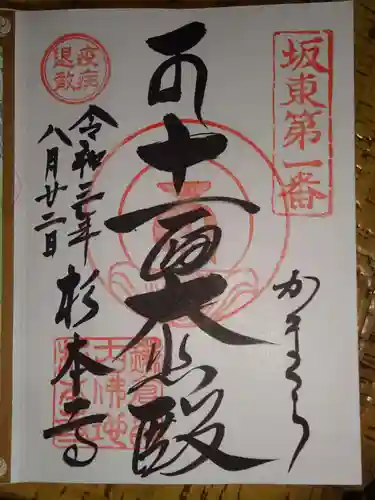 坂東第一番
かまくら
十一面大悲殿
疫病退散
令和三年
八月廿二日
杉本寺